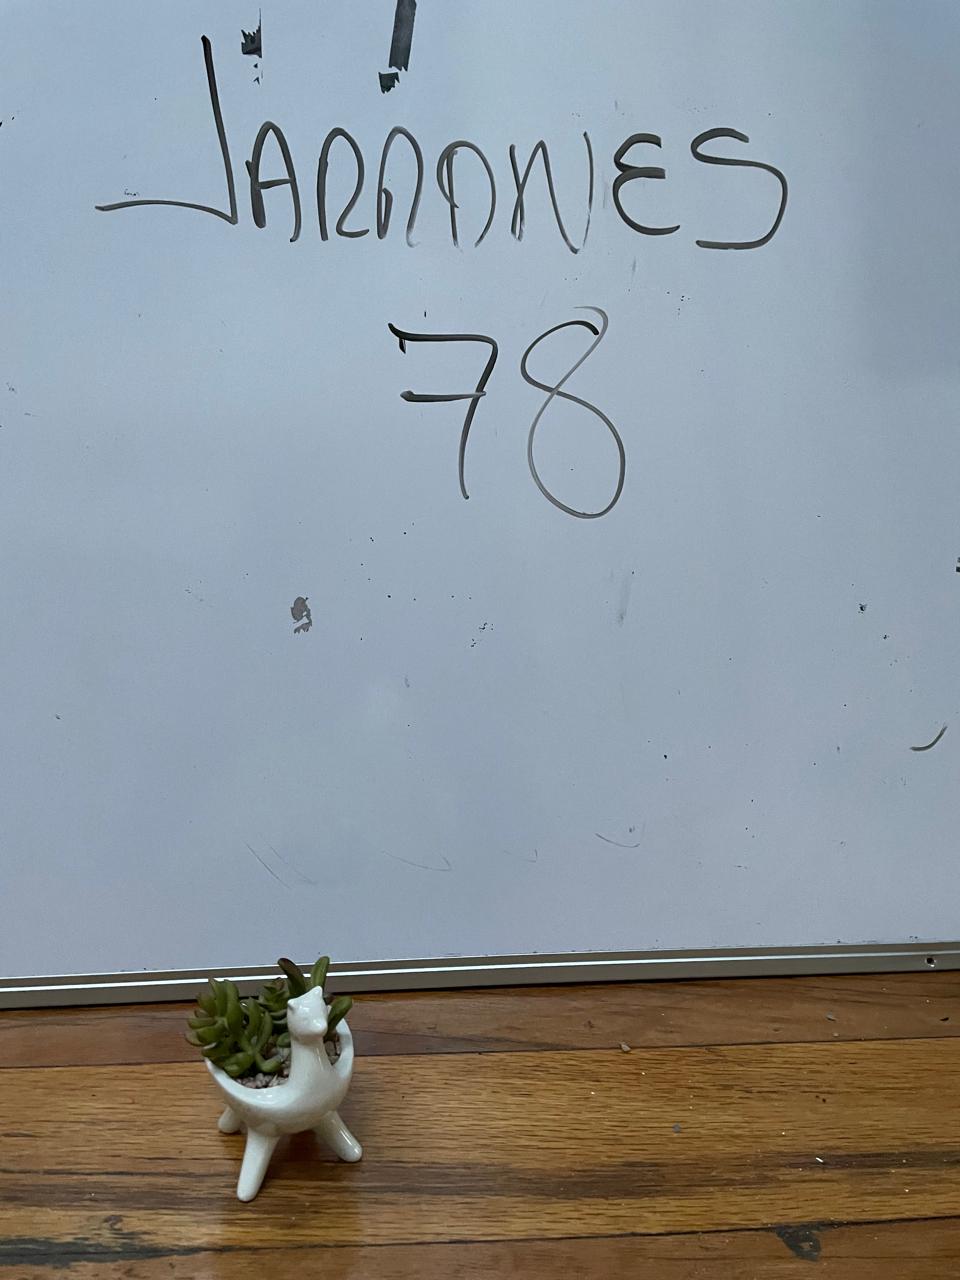 JARRONES
78